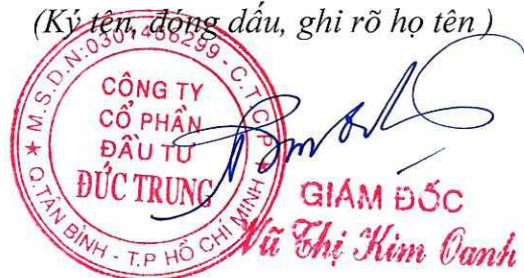 (Ký tên, đóng dấu, ghi rõ họ tên )
M.S.D.N:0301456299 - C.T.C.P
CÔNG TY
CỔ PHẦN
ĐẦU TƯ
ĐỨC TRUNG
Q.TÂN BÌNH - T.P HỒ CHÍ MINH
GIÁM ĐỐC
Vũ Thị Kim Oanh